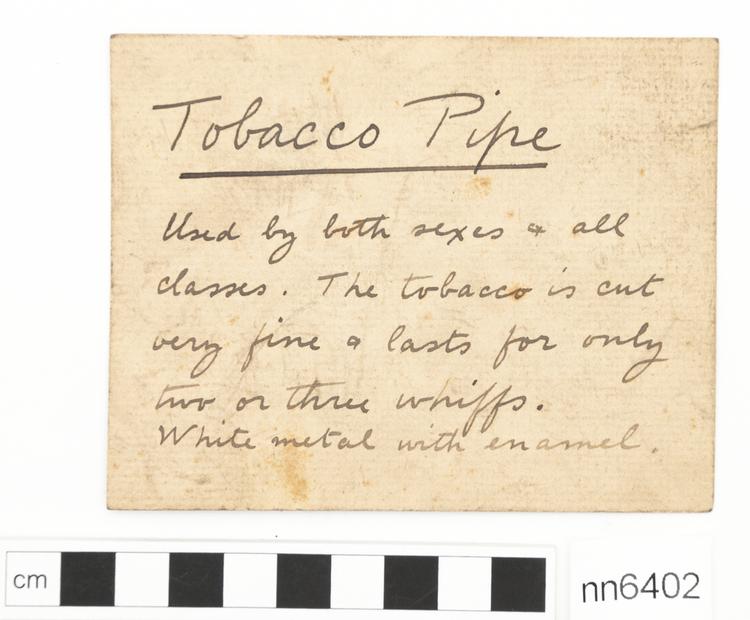 Tobacco Pipe
Used by both sexes & all
classes. The tobacco is cut
very fine & lasts for only
two or three whiffs.
White metal with enamel.
cm
nn6402